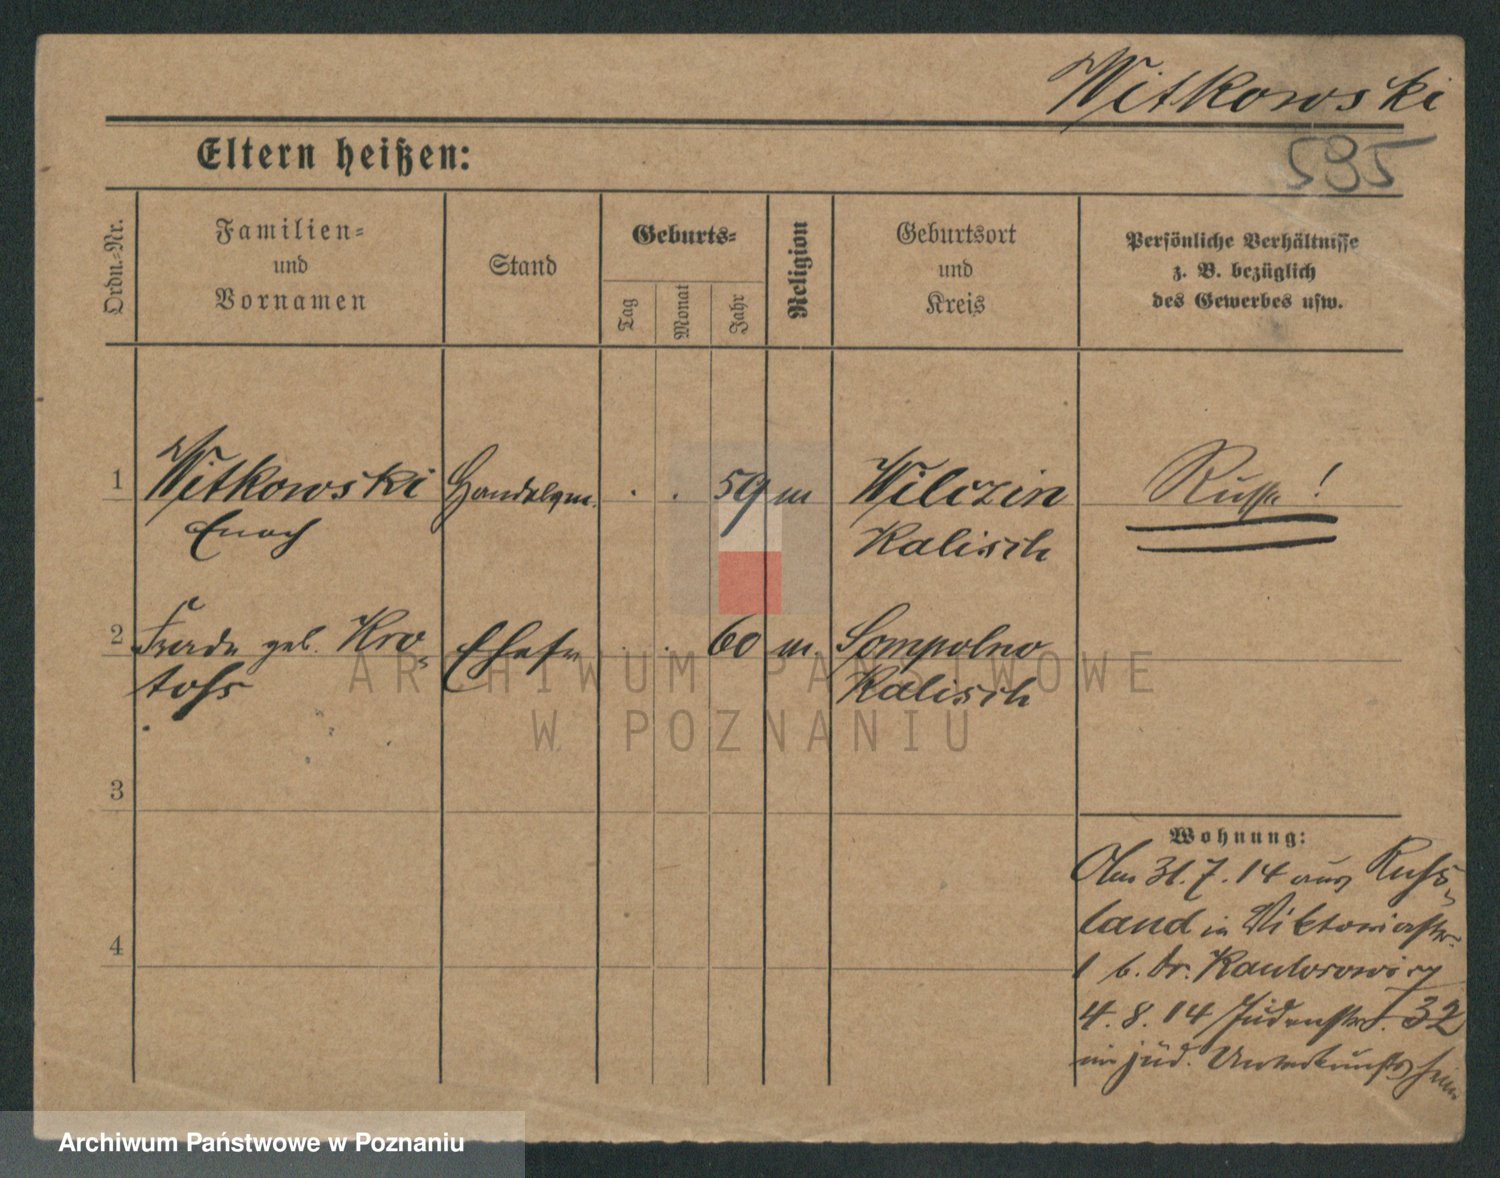 Witkowski
595
Eltern heißen:
Ordn.-Nr.
Familien-
und
Vornamen
Stand
Geburts-
Tag
Monat
Jahr
Religion
Geburtsort
und
Kreis
Persönliche Verhältnisse
z. B. bezüglich
des Gewerbes usw.
1 Witkowski Handelsm. . . 59 m Wilczin Russe!
Enoch Kalisch
2 geb. Kro- Ehefr . . 60 m. Sompolno
Kalisch
3
4
Wohnung:
Am 31.7.14 aus Russ-
land in Viktoriastr.
1 b. Dr. Kantorowicz
4.8.14 Judenstr. 32
im jüd. Unterkunftsheim
ARCHIWUM PAŃSTWOWE
W POZNANIU
Archiwum Państwowe w Poznaniu